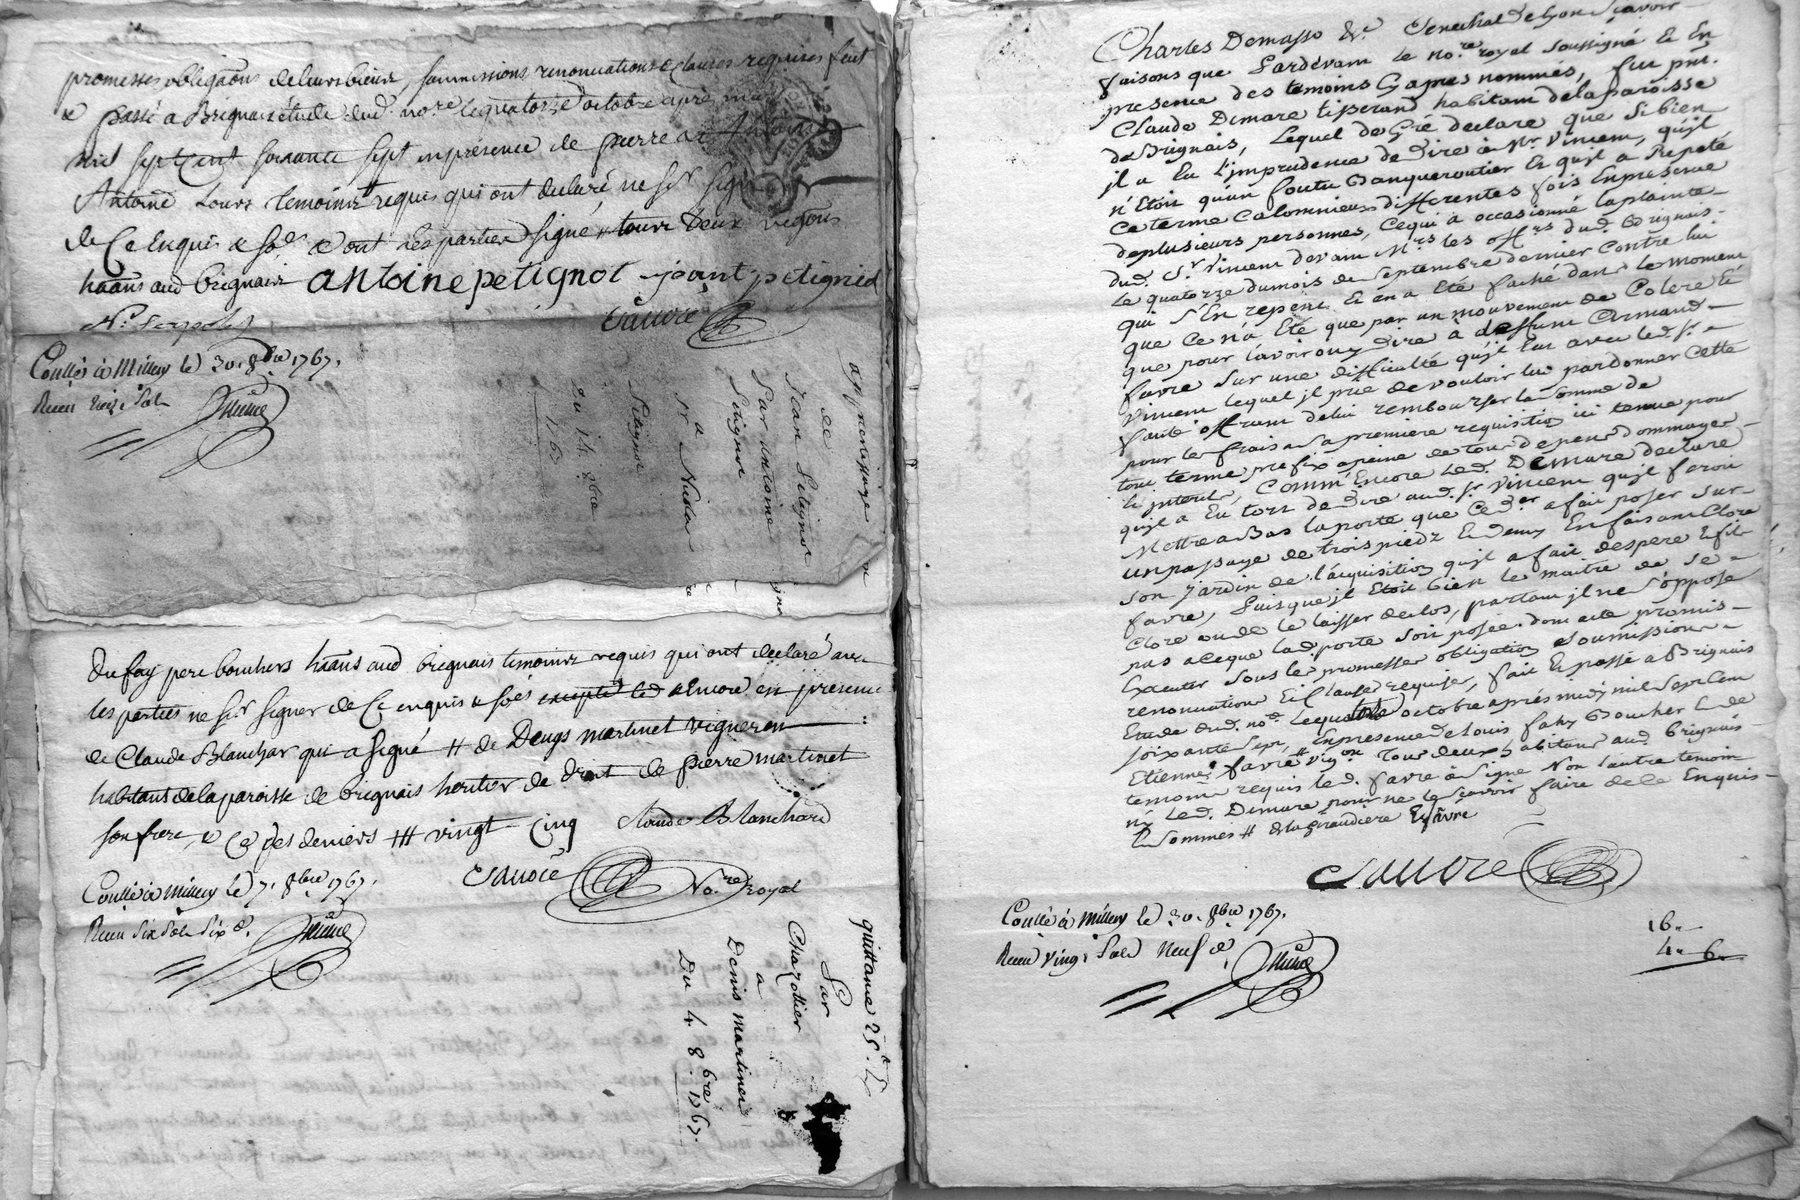 promesses obligãons de leurs biens, soummissions renonciations & clauses requises fait
& passé a Brignais étude dud. no.re le quatorze octobre après midi
mil sept cent soixante sept en presence de pierre
Antoine Tours temoins requis qui ont declaré ne sç.r signer
de Ce Enquis & so.és & ont les parties signé # tours deux vignons
haãns aud brignais antoine petignot
Coullé à Millery le 30. 8bre 1767.
Reçu Treize Sols
apprentissage de
Jean Petignot
Par antoine
Petignot
a
N. Nicolas
Petignot
du 14 8bre
1767
du fay pere bouchers haãns aud brignais temoins requis qui ont declaré avec
les parties ne sç.r signer de Ce enquis & soés excepté led encore en presence
de Claude Blanchar qui a signé # de Denys martinet vigneron
habitans de la paroisse de brignais heritier de droit de pierre martinet
son frere, & Ce pes deniers ## vingt Cinq Claude Blanchard
Sauvre No.re royal
Coullé à Millery le 7. 8bre 1767.
Reçu Six Sols Six d.
quittance 25 #
Par
Chazottier
a
Denis martinet
Du 4 8bre 1767.
Charles Demasso &c. Senechal de Lyon Sçavoir
faisons que Pardevant le no.re royal soussigné Et En
presence des temoins Cy apres nommés, fut pnt.
Claude Dimare tisserand habitant de la paroisse
de Brignais, Lequel de Gré declare que Si bien
jl a Eu L'imprudence de Dire a Mr. Vincent, qu'jl
n'Etoit qu'un foutu Banqueroutier Et qu'jl a Repeté
Ce terme Calomnieux differentes fois En presence
de plusieurs personnes, Ce qui a occasionné la plainte
dud. Sr. Vincent devant Mrs les offrs dud. Brignais
Le quatorze du mois de Septembre dernier Contre lui
qu'jl s'En repent Et en a Eté faché dans le moment
que Ce n'a Eté que par un mouvement de Colere Et
que pour l'avoir ouy dire a deffunt Armand
favre Sur une difficulté qu'jl Eut avec led. Sr.
Vincent lequel jl prie de vouloir lui pardonner Cette
faute offrant de lui rembourser la Somme de
pour les frais a Sa premiere requisition ici tenue pour
tout terme prefix a peine de tous depens dommages
Et jnterets, Comm'Encore led. Demare declare
qu'jl a Eu tort de Dire aud. Sr Vincent qu'jl feroit
Mettre a Bas la porte que Ce d.er a fait poser Sur
un passage de trois pieds Et demy En faisant Clore
Son jardin de l'acquisition qu'jl a fait des pere & fils
favre, Puisque jl Etoit bien le maitre de Se
Clore ou de le laisser declos, partant jl ne s'oppose
pas a ce que lad porte soit posée. dont acte promis
Executer Sous les promesses obligation Soumission
renonciation Et Clauses requises, fait Et passé a Brignais
Etude dud. no.e Le quatorze octobre après midy mil Sept Cent
Soixante Sept, En presence de Louis fahy Boucher Et de
Etienne favre # vig.on Tous deux habitans aud. Brignais
temoins requis led. favre a Signé Non L'autre temoin
ny Led. Dimare pour ne le Sçavoir faire de ce Enquis
Et Sommés # de la Giraudiere E favre
Sauvre
Coullé à Millery le 30. 8bre 1767.
Reçu Vingt Sols Neuf d.
16"
4" 6